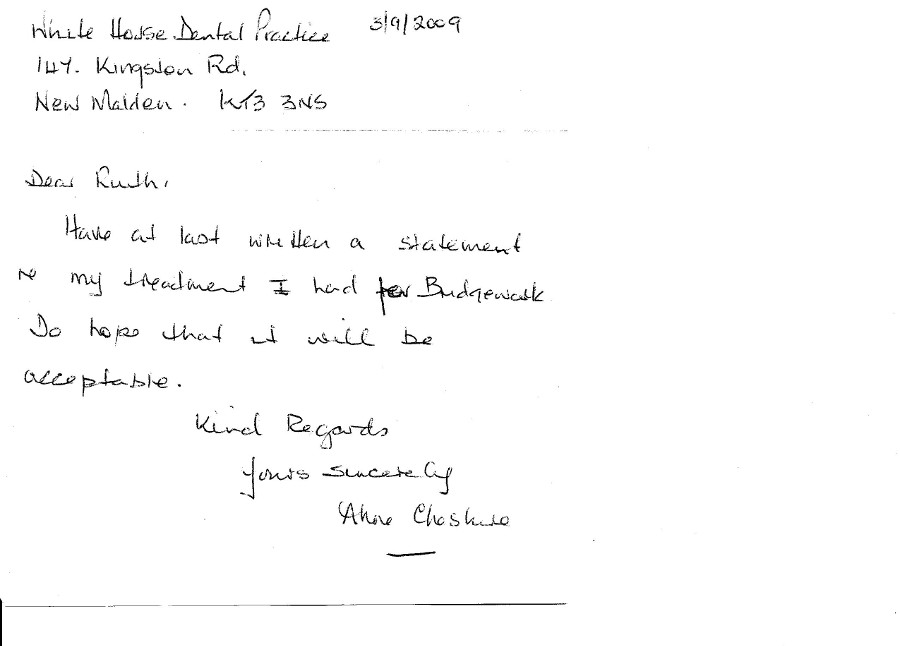 White House Dental Practice 3/9/2009
147. Kingston Rd.
New Malden. KT3 3NS
Dear Ruth,
Have at last written a statement
re my treatment I had for Bridgework
Do hope that it will be
acceptable.
Kind Regards
Yours Sincerely
Anne Cheshire